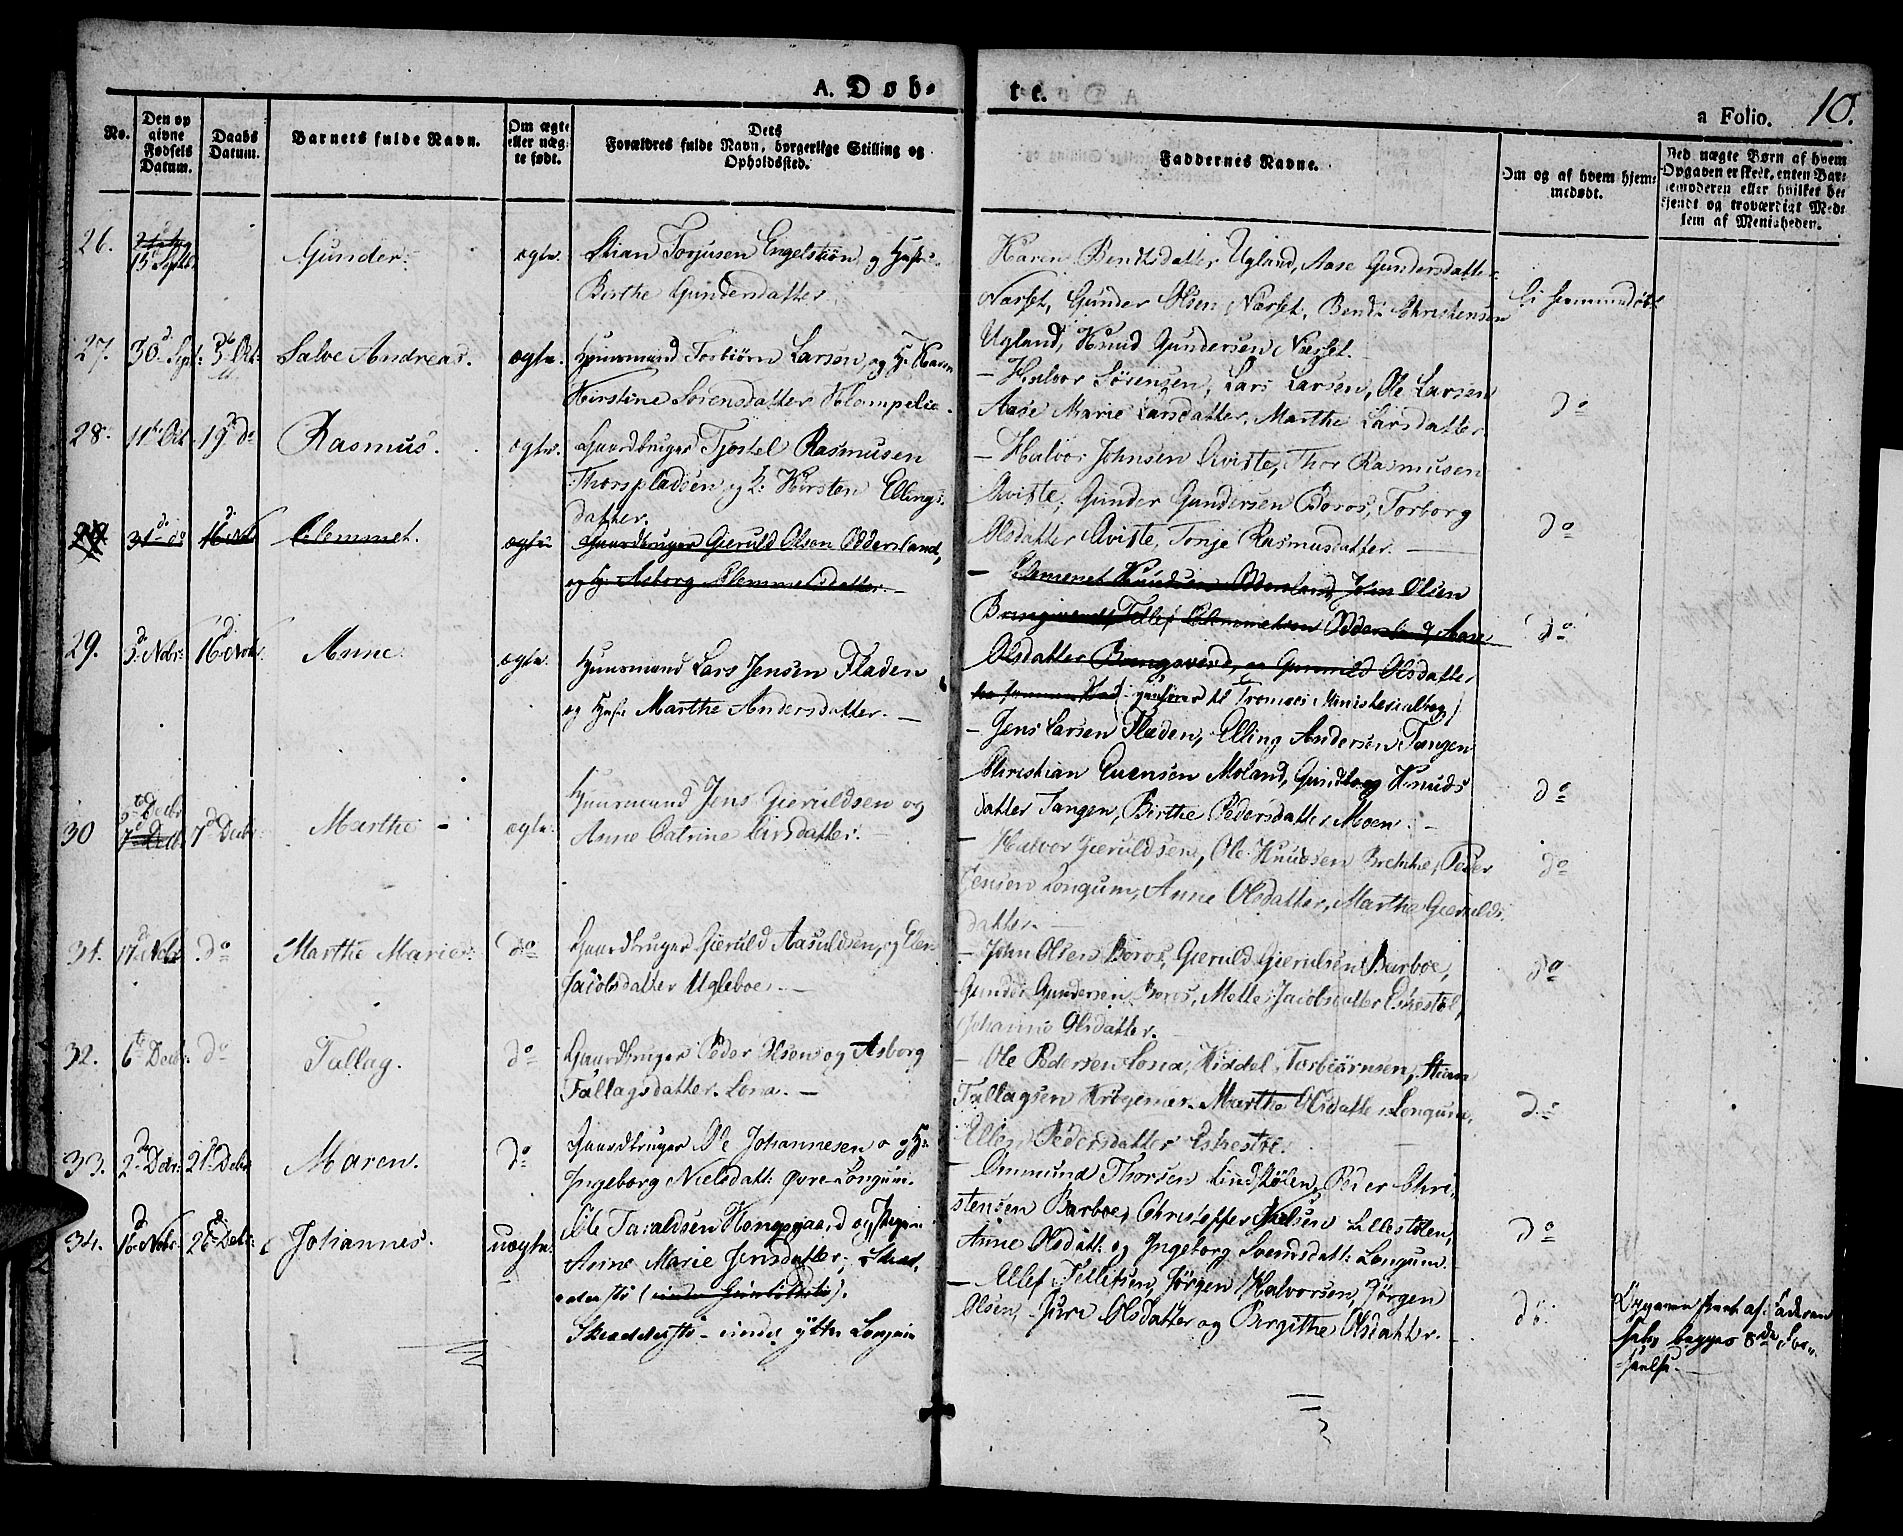 A. Døb-
te.
a Folio. 10.
No.
Den op
givne
Fødsels
Datum.
Daabs
Datum.
Barnets fulde Navn.
Om ægte
eller uæg-
te født.
Dets
Forældres fulde Navn, borgerlige Stilling og
Opholdssted.
Faddernes Navne.
Om og af hvem hjem-
medøbt.
Ved uægte Børn af hvem
Opgaven er skeet, enten Bar-
nemoderen eller hvilket be-
kjendt og troværdigt Med-
lem af Menigheden.
26.
15 Septb
Gunder.
ægte.
Stian Torjusen Engelstiøn og Hustr.
Birthe Gundersdatter
Karen Bendtsdatter Ugland, Aase Gundersdatter
Næset, Gunder Olsen Næset, Bendt Christensen
Ugland, Knud Gundersen Næset.
Ei hjemmedøbt
27.
30 Sept:
3 Oct:
Salve Andreas.
ægte.
Huusmand Torbiörn Larsen, og H. Karen
Kirstine Sörensdatter Klompelie.
- Halvor Sörensen, Lars Larsen, Ole Larsen
Aase Marie Larsdatter, Marthe Larsdatter.
do
28.
11te Oct
19 do
Rasmus.
ægte.
Gaardbruger Tjøstel Rasmusen
Thorspladsen og H: Kirsten Ellings-
datter.
- Halvor Johnsen Qviste, Thor Rasmusen
Qviste, Gunder Gundersen Boros, Torborg
Olsdatter Qviste, Tonje Rasmusdatter. -
do
29.
31 do
16 Nov
Clemmet.
ægte
Gaardbruger Gieruld Olsen Oddersland,
og H: Asborg Clemmetsdatter. -
- Clemmet Knudsen Oddersland, John Olsen
Brengsværd, Tellef Clemmetsen Oddersland, Aase
Olsdatter Brengsværd, og Gunnild Olsdatter
(henføres til Tromøe Ministerialbog)
do
29.
3 Nobr:
16 Nobr.
Anne.
ægte.
Huusmand Lars Jensen Fladen
og Hust: Marthe Andersdatter. -
- Jens Larsen Fladen, Elling Andersen Tangen
Christian Evensen Moland, Gundborg Knuds
datter Tangen, Birthe Pedersdatter Moen. -
do
30
7 Decbr:
Marthe -
ægte.
Huusmand Jens Gieruldsen og
Anne Catrine Larsdatter.
- Halvor Gieruldsen, Ole Knudsen Brekke, Peder
Jensen Longum, Anne Olsdatter, Marthe Gierulds
datter. -
do
31.
17 Nobr
do
Marthe Marie.
do
Gaardbruger Gieruld Aasuldsen, og Elen
Jacobsdatter Ugleboe. -
- John Olsen Boros, Gieruld Gierulsen Barboe,
Gunder Gundersen Boros, Mette Jacobsdatter Eskestøl,
Johanne Olsdatter.
do
32.
6te Decbr:
do
Tallag.
do
Gaardbruger Peder Olsen og Asborg
Tallagsdatter Lona. -
- Ole Pedersen Lona, Kiddel Torbiörnsen, Stian
Tallagsen Krøgenes, Marthe Olsdatter Longum,
Ellen Pedersdatter Eskestøl.
do
33.
2 Decbr:
26 Decbr
Maren.
do
Gaardbruger Ole Johannesen og H:
Ingeborg Nielsdatt: øvre Longum.
- Ommund Thorsen Lindstölen, Peder Chri-
stensen Barboe, Christopher Nielsen Lillestölen,
Anne Olsdatt: og Ingeborg Svendsdatt: Longum.
do
34.
16 Nobr:
26 Decbr:
Johannes.
uægte.
Ole Taraldsen Kongsgaard og Pigen
Anne Marie Jensdatter,
- nedre ytre Longum
- Ellef Tellefsen, Jörgen Halvorsen, Jörgen
Olsen, Juri Olsdatter og Birgithe Olsdatter.
do
Opgaven skeet af Faderen
selv, begges 8de For-
seelse.